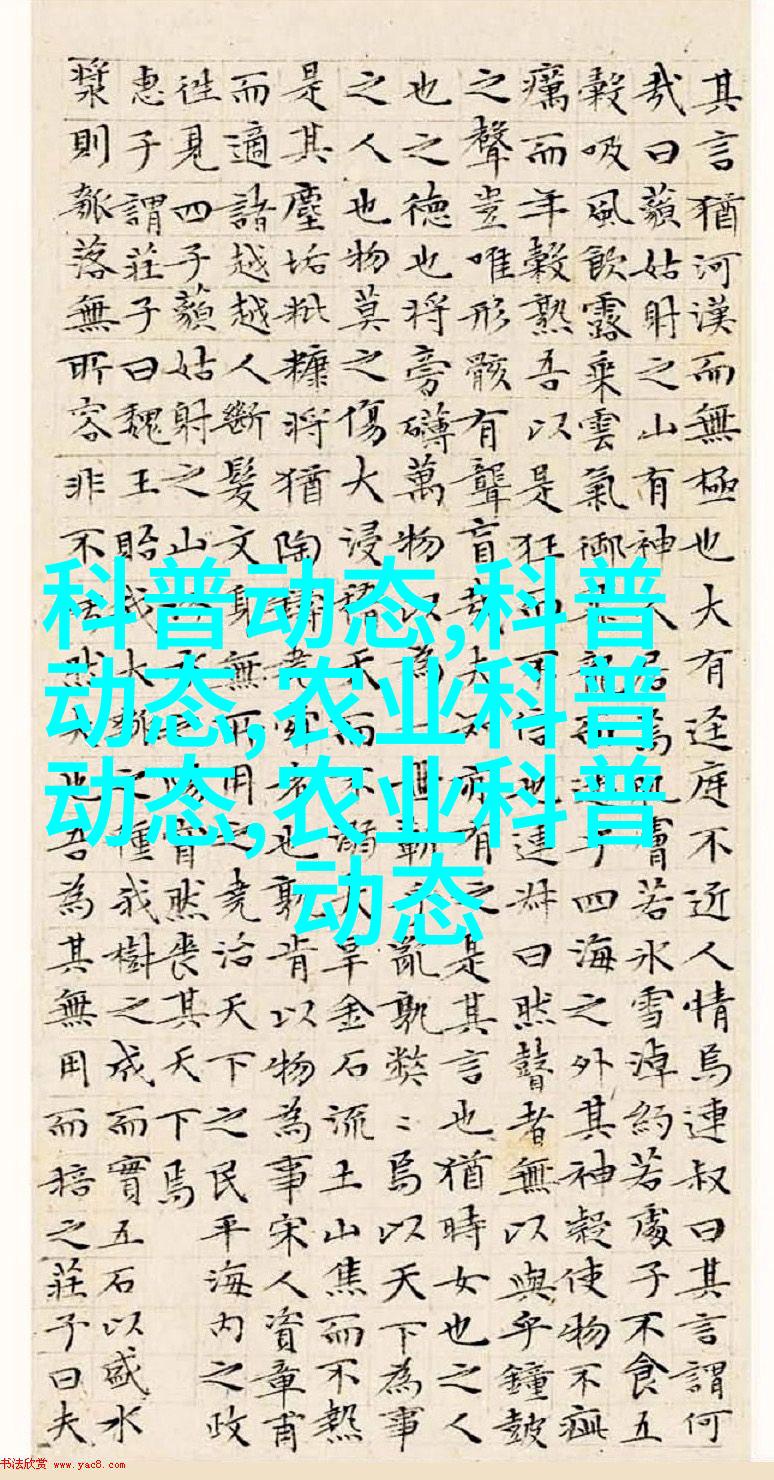 其言猶河漢而無極也大有迳庭不近人情焉連叔曰其言謂何
哉曰藐姑射之山有神人居焉肌膚若氷雪淖約若處子不食五
穀吸風飲露乗雲氣御乎四海之外其神凝使物不疵
癘而年穀熟吾以是狂而不信也連叔曰然瞽者無以與乎鐘鼓
之聲豈唯形骸有聾盲哉夫知亦有之是其言也猶時女也之人
也之德也将旁礴萬物以為一世蘄乎亂孰弊〻焉以天下為事
之人也物莫之傷大浸稽天而不溺大旱金石流土山焦而不熱
是其塵垢粃糠将猶陶鑄堯舜者也孰肯以物為事宋人資章甫
而適諸越越人斷髮文身無所用之堯治天下之民平海内之政
徃見四子藐姑射之山水陽窅然喪其天下焉
惠子謂莊子曰魏王貽我大瓠之種我樹之成而實五石以盛水
漿則瓠落無所容非不然大也吾為其無用而掊之莊子曰夫
科普动态,科普
动态,农业科普
动态,农业科普
动态
书法欣赏 www.yac8.com